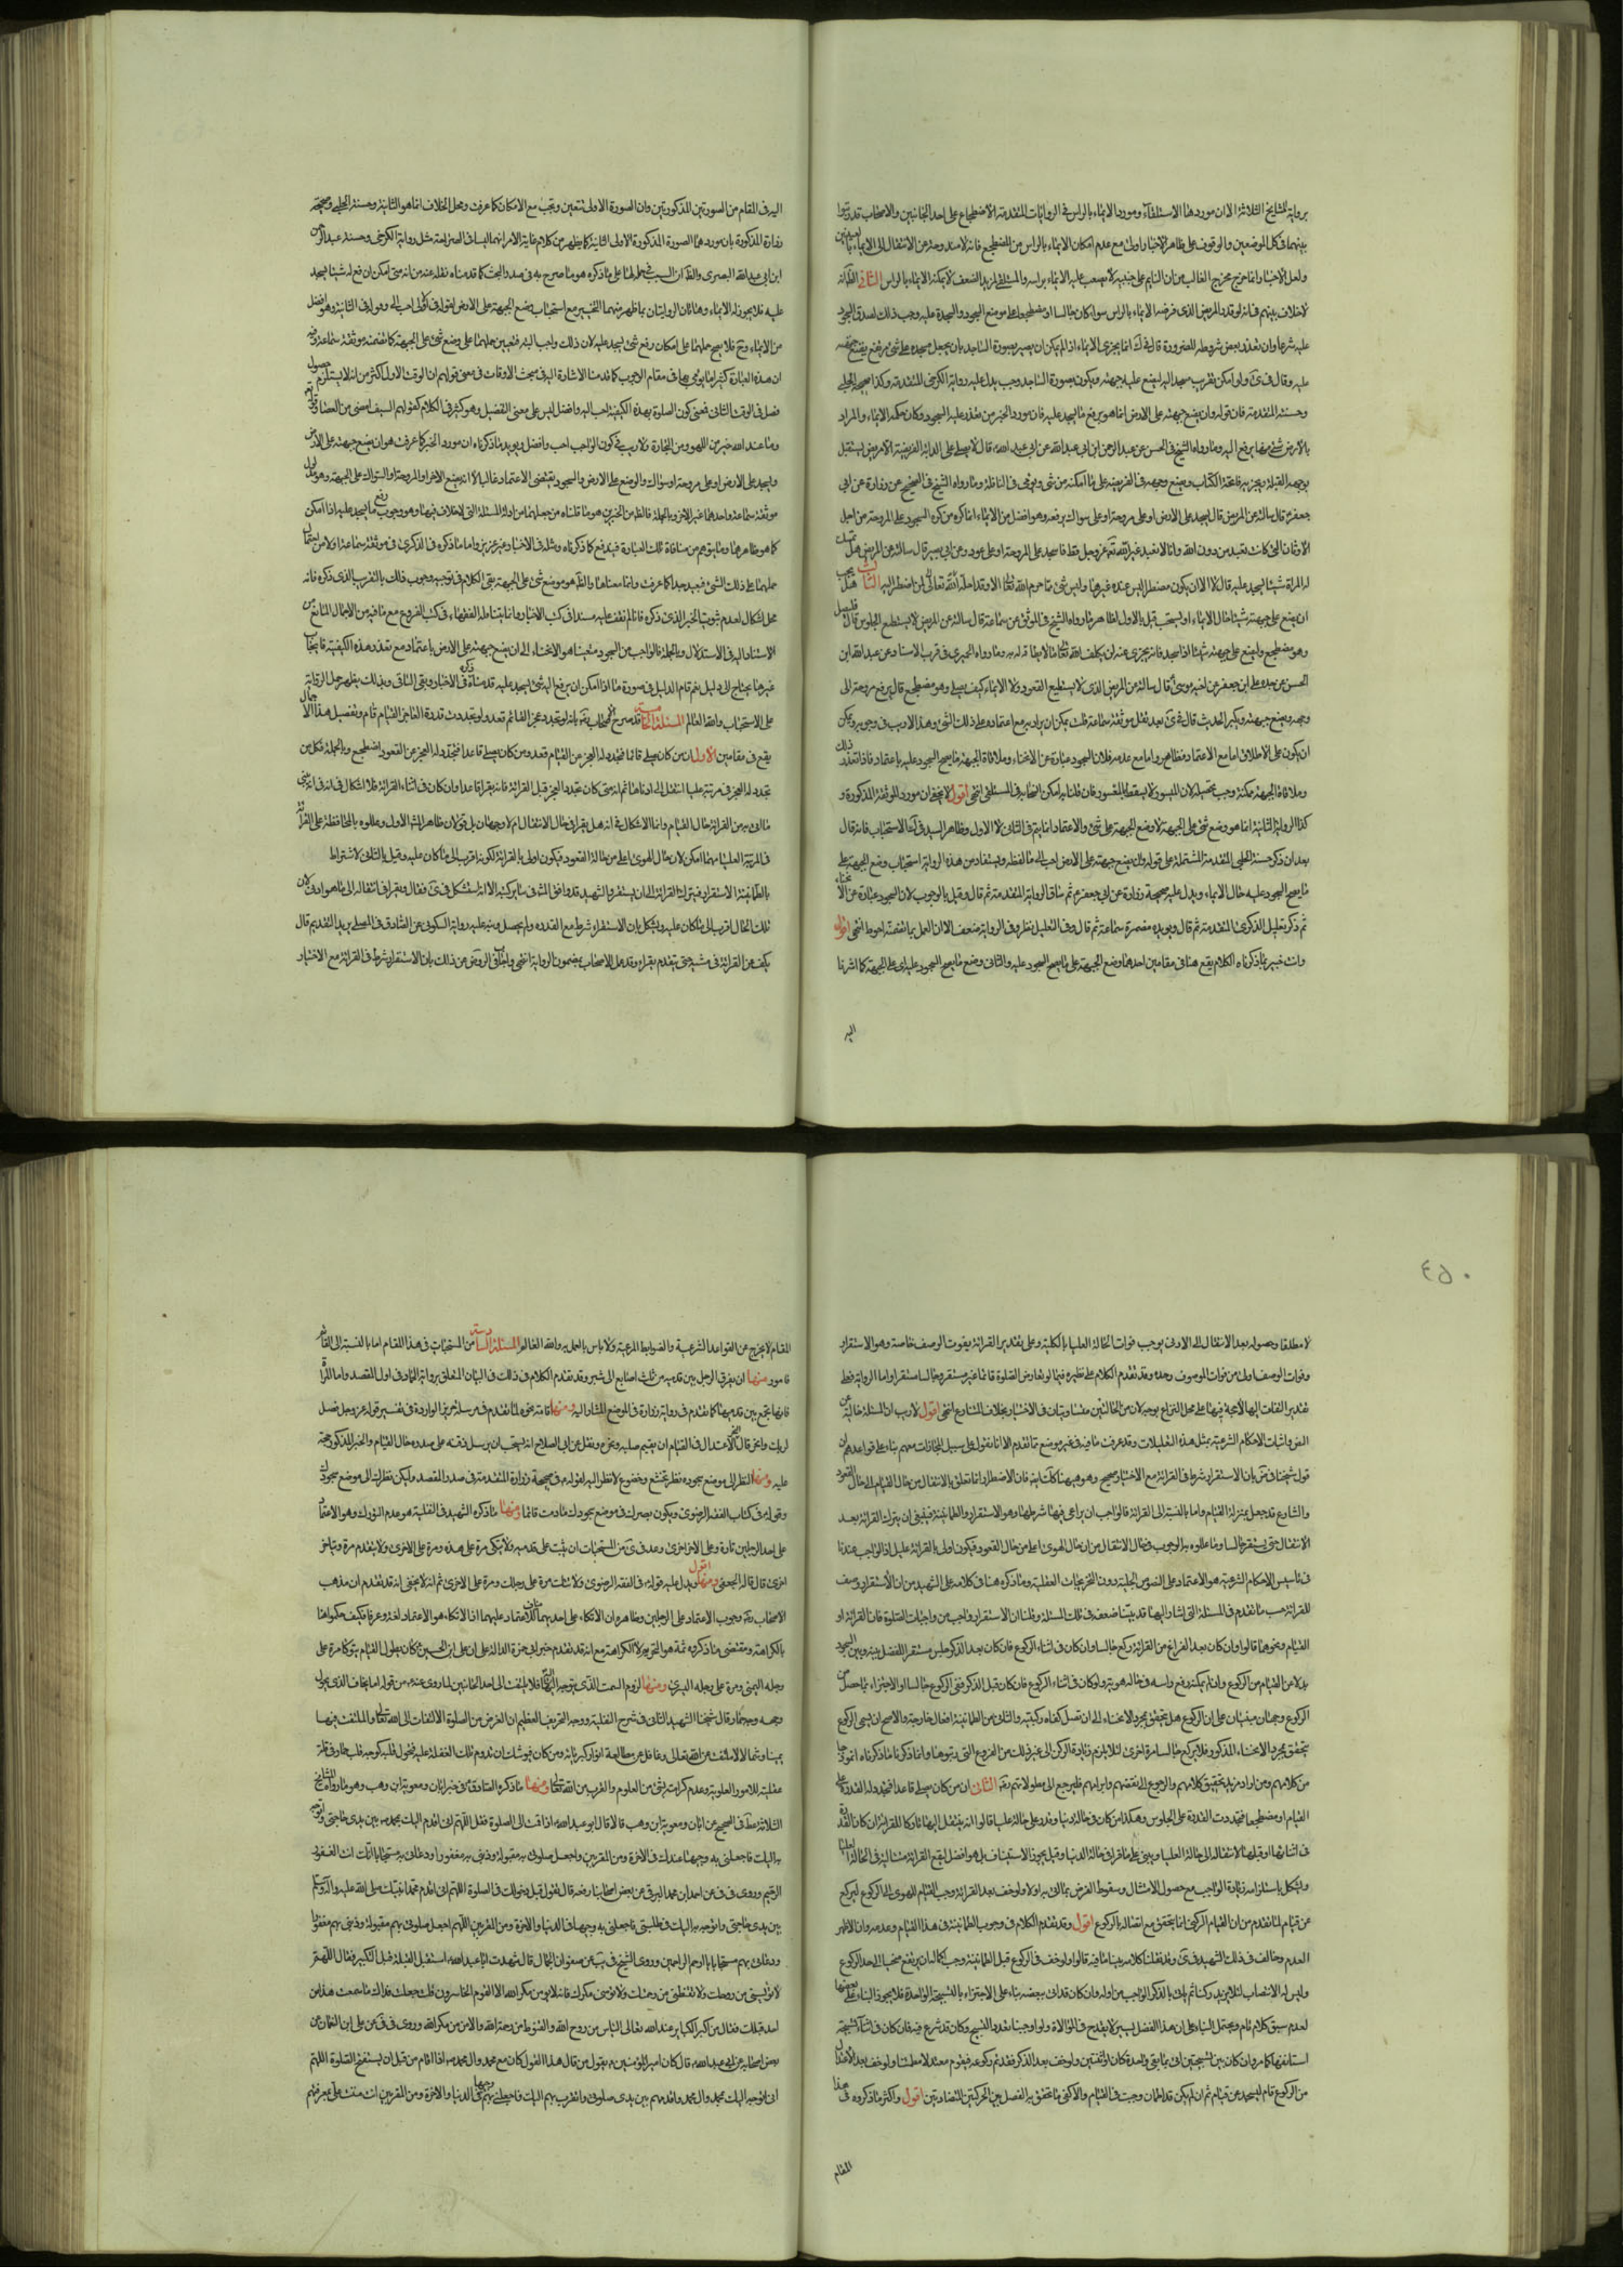 برواية المشايخ الثلاثة الا ان مورد هذا الاستلقاء ومورد الايماء بالراس في الروايات المتقدمة الاضطجاع على احد الجانبين والاصحاب قد رتبوا
بينهما في كل الموضعين والوقوف على ظاهر الاخبار اولى مع عدم امكان الايماء بالراس من المضطجع فانه لا بد وحده من الانتقال الى الايماء بالعينين
ولعل الاخبار انما خرج مخرج الغالب من ان النايم على جنبه لا يصعب عليه الايماء براسه والمستلقي لمزيد الضعف لا يمكنه الايماء بالراس الثاني الظ انه
لا خلاف بينهم في انه لو قدر المريض الذي فرضه الايماء بالراس سواء كان جالسا او مضطجعا على موضع السجود والسجدة عليه وجب ذلك لصدق السجود
عليه شرعا وان تعذر بعض شروطه للضرورة قال في ك انما يجزي الايماء اذا لم يمكن ان يصير بصورة الساجد بان يجعل مسجده على شئ مرتفع يضع جبهته
عليه وقال في ى ولو امكن تقريب مسجد اليه ليضع عليه جبهته ويكون بصورة الساجد وجب يدل عليه رواية الكرخي المتقدمة وكذا صحيحة الحلبي
وحسنته المتقدمة فان قوله وان يضع جبهته على الارض انما هو برفع ما يسجد عليه فان مورد الخبر من تعذر عليه السجود وكان حكمه الايماء والمراد
بالارض شئ منها يرفع اليه وما رواه الشيخ في الحسن عن عبد الرحمن ابن ابي عبد الله عن ابي عبد الله ع قال لا يصلي على الدابة الفريضة الا مريض يستقبل
بوجهه القبلة ويجزيه فاتحة الكتاب ويضع وجهه في الفريضة على ما امكنه من شئ ويومي في النافلة وما رواه الشيخ في الصحيح عن زرارة عن ابي
جعفر ع قال سالته عن المريض قال يسجد على الارض او على مروحة او على سواك يرفعه وهو افضل من الايماء انما كره من كره السجود على المروحة من اجل
الاوثان التي كانت تعبد من دون الله وانا لا نعبد غير الله عز وجل قط فاسجد على المروحة او على عود وعن ابي بصير قال سالته عن المريض هل تمسك
له المراة شيئا يسجد عليه قال لا الا ان يكون مضطرا ليس عنده غيرها وليس شئ مما حرم الله تعالى الا وقد احله الله تعالى لمن اضطر اليه الثالث هل يجب
ان يضع على جبهته شيئا حال الايماء او يستحب قيل بالاول لظاهر ما رواه الشيخ في الموثق عن سماعة قال سالته عن المريض لا يستطيع الجلوس قال فليصل
وهو مضطجع وليضع على جبهته شيئا اذا سجد فانه يجزي عنه لن يكلف الله تعالى ما لا طاقة له به وما رواه الحميري في قرب الاسناد عن عبد الله ابن
الحسن عن جده علي ابن جعفر عن اخيه موسى ع قال سالته عن المريض الذي لا يستطيع القعود ولا الايماء كيف يصلي وهو مضطجع قال يرفع مروحة الى
وجهه ويضع جبهته ويكبر الحديث قال في ى بعد نقل موثقة سماعة قلت يمكن ان يراد به مع اعتماده على ذلك الشئ وهذا لا ريب في وجوبه ويمكن
ان يكون على الاطلاق اما مع الاعتماد فظاهر واما مع عدمه فلان السجود عبارة عن الانحناء وملاقاة الجبهة ما يصح السجود عليه باعتماد فاذا تعذر ذلك
وملاقاة الجبهة ممكنة وجب تحصيله لان الميسور لا يسقط بالمعسور فان قلنا به امكن انسحابه في المستلقي انتهى اقول لا يخفى ان مورد الموثقة المذكورة و
كذا الرواية الثانية انما هو وضع شئ على الجبهة لا وضع الجبهة على شئ والاعتماد انما يتم في الثاني لا الاول وظاهر السيد في ك الاستحباب فانه قال
بعد ان ذكر حسنة الحلبي المتقدمة المشتملة على قوله وان يضع جبهته على الارض احب الي ما لفظه ويستفاد من هذه الرواية استحباب وضع الجبهة على
ما يصح السجود عليه حال الايماء ويدل عليه صحيحة زرارة عن ابي جعفر ع ثم ساق الرواية المتقدمة ثم قال وقيل بالوجوب لان السجود عبارة عن الانحناء
ثم ذكر تعليل الذكرى المتقدمة ثم قال ويؤيده مضمرة سماعة ثم قال وفي التعليل نظر وفي الرواية ضعف الا ان العمل بما تضمنته احوط انتهى اقول
وانت خبير بما ذكرناه الكلام يقع هنا في مقامين احدهما وضع الجبهة على ما يصح السجود عليه والثاني وضع ما يصح السجود عليه على الجبهة كما اشرنا
اليه
اليه في المقام من الصورتين المذكورتين وان الصورة الاولى تتعين وتجب مع الامكان كما عرفت ومحل الخلاف انما هو الثانية وحسنة الحلبي وصحيحة
زرارة المذكورة بان موردهما الصورة المذكورة الاولى الثانية كما يظهر من كلام غاية الامر انهما ليسا في الصراحة مثل رواية الكرخي وحسنة عبد الرحمن
ابن ابي عبد الله البصري والظ ان السيد
عليه فلا يجوز له الايماء وهاتان الروايتان بما ظهر منهما التخيير مع استحباب وضع الجبهة على الارض لقوله في الاولى احب الي وقوله في الثانية وهو افضل
من الايماء وح فلا يصح حملهما على امكان رفع شئ يسجد عليه لان ذلك واجب البتة فتعين حملهما على وضع شئ على الجبهة كما تضمنته موثقة سماعة وفيه
ان هذه العبارة كثيرا ما يؤتى بها في مقام الوجوب كما قدمنا الاشارة اليه في مبحث الاوقات في معنى قولهم ان الوقت الاول اكثر من ان لا يستلزم حصول
فضل في الوقت الثاني فمعنى كون الصلوة بهذه الكيفية احب اليه وافضل ليس على معنى التفضيل وهو كثير في الكلام كقولهم السيف امضى من العصا وقوله
وما عند الله خير من اللهو ومن التجارة ولا ريب في كون الواجب احب وافضل ويؤيد ما ذكرناه ان مورد الخبر كما عرفت هو ان يضع جبهته على الارض
ويسجد على الارض او على مروحة او سواك والوضع على الارض بالسجود يقتضي الاعتماد غالبا لا انه يضع الاخر او المروحة او السواك على الجبهة وهو مدلول
موثقة سماعة
كما هو ظاهر
حملهما على ذلك الشئ فبعيد جدا كما عرفت وانما معناها بالظ هو موضع شئ على الجبهة بقي الكلام في توجه وجوب ذلك بالتقريب الذي ذكره فانه
محل اشكال لعدم ثبوت الخبر الذي ذكره فانا لم نقف عليه مسندا في كتب الاخبار وانما يتناقله الفقهاء في كتب الفروع مع ما فيه من الاجمال المانع من
الاستناد اليه في الاستدلال وبالجملة فالواجب من السجود متعينا هو الانحناء الى ان يضع جبهته على الارض باعتماد ومع تعذر هذه الكيفية فايجاب
غيرها يحتاج الى دليل نعم قام الدليل في صورة ما اذا امكن ان يرفع اليه شئ يسجد عليه كما قدمنا ذكره في الاخبار وبقي الباقي وبذلك يظهر حمل الرواية
على الاستحباب والله العالم المسئلة الخامسة قد صرح الاصحاب رض بانه لو تجدد عجز القائم قعد ولو تجددت قدرة العاجز القيام قام وتفصيل هذا الاجمال
يقع في مقامين الاول ان من كان يصلي قائما فتجدد له العجز عن القيام قعد ومن كان يصلي قاعدا فتجدد له العجز عن القعود اضطجع وبالجملة فكل من
تجدد له العجز في مرتبة عليا انتقل الى ادناها ثم انه متى كان تجدد العجز قبل القرائة فانه يقرا قاعدا وان كان في اثناء القرائة فلا اشكال في انه
ما اتى به من القرائة حال القيام وانما الاشكال في انه هل يقرا في حال الانتقال ام لا وجهان بل قولان ظاهر المش الاول وعللوه بالمحافظة على القرائة
في المرتبة العليا مهما امكن لان حال الهوي اعلى من حالة القعود فيكون اولى بالقرائة لكونه اقرب الى ما كان عليه وقيل بالثاني لاشتراط
بالطمأنينة الاستقرار فيترك القرائة الى ان يستقر والشهيد قد وافق المش في ساير كتبه الا انه استشكل في ى فقال ويقرا في انتقاله الى ما هو ادنى لان
تلك الحال اقرب الى ما كان عليه ويشكل بان الاستقرار شرط مع القدرة ولم يحصل وينبه عليه رواية السكوني عن الصادق ع في المصلي يريد التقدم قال
يكف عن القرائة في مشيه حتى يتقدم ثم يقرا وقد عمل الاصحاب بمضمون الرواية انتهى واجاب في الروض عن ذلك بان الاستقرار شرط في القرائة مع الاختيار
٤٥٠
لا مطلقا وحصوله بعد الانتقال الى الادنى يوجب فوات الحالة العليا بالكلية وعلى تقدير القرائة يفوت الوصف خاصة وهو الاستقرار
وفوات الوصف اولى من فوات الموصوف وحده وقد تقدم الكلام على نظيره فيما لو تعارض الصلوة قائما غير مستقر وجالسا مستقرا واما الرواية فعلى
تقدير التفات اليها لا حجة فيها على محل النزاع بوجه لان من الحالتين متساويتان في الاختيار بخلاف المتنازع انتهى اقول لا ريب ان المسئلة خالية عن
النص واثبات الاحكام الشرعية بمثل هذه التعليلات وقد عرفت ما فيه في غير موضع مما تقدم الا انا نقول على سبيل المجازات معهم بناء على قواعدهم ان
قول شيخنا في ض بان الاستقرار شرط في القرائة مع الاختيار صحيح وهو هيهنا كذلك فان الاضطرار انما تعلق بالانتقال من حال القيام الى حال القعود
والشارع قد جعل بمنزلة القيام واما بالنسبة الى القرائة فالواجب ان يراعى فيها شرطها وهو الاستقرار والطمانينة فينبغي ان يترك القرائة بعد
الانتقال حتى يستقر جالسا وما عللوه به الوجوب في حال الانتقال من ان حال الهوي اعلى من حال القعود فيكون اولى بالقرائة عليل اذ الواجب عندنا
في تاسيس الاحكام الشرعية هو الاعتماد على النصوص الجلية دون التخريجات العقلية وما ذكره هنا في كلامه على الشهيد من ان الاستقرار وصف
للقرائة حسب ما تقدم في المسئلة التي اشار اليها قد بينا ضعفه في تلك المسئلة وقلنا ان الاستقرار واجب من واجبات الصلوة فان القرائة او
القيام ونحوهما قالوا وان كان بعد الفراغ من القرائة ركع جالسا وان كان في اثناء الركوع فان كان بعد الذكر جلس مستقرا للفصل بينه وبين السجود
بدلا عن القيام من الركوع وان لم يمكنه رفع راسه في حاله هوى به ولو كان في اثناء الركوع فان كان قبل الذكر ففي الركوع جالسا او الاجتزاء بما حصل من
الركوع وجهان مبنيان على ان الركوع هل يتحقق بمجرد الانحناء الى ان تصل كفاه ركبتيه والباقي من الطمانينة افعال خارجة والاصح ان يسمى الركوع
يتحقق بمجرد الانحناء المذكور فلا يركع جالسا مرة اخرى لئلا يلزم زيادة الركن الى غير ذلك من الفروع التي رتبوها وانما ذكرنا ما ذكرناه انموذجا
من كلامهم ومن اراد مزيد تحقيق كلامهم والرجوع الى نقضهم وابرامهم فليرجع الى مطولاتهم رض الثاني ان من كان يصلي قاعدا فتجدد له القدرة على
القيام او مضطجعا فتجددت القدرة على الجلوس وهكذا من كان في حالة دنيا وقدر على حالة عليا قالوا انه ينتقل اليها تاركا للقرائة ان كان القدرة
في اثنائها او قبلها لانتقاله الى حالة العليا ويبني على ما قرا في حالة الدنيا وقيل يجوز الاستيناف بل هو افضل ليقع القرائة متتالية في الحالة العليا
واشكل باستلزامه زيادة الواجب مع حصول الامتثال وسقوط الفرض بما اتى به اولا ولو خف بعد القرائة وجب القيام للهوي الى الركوع ليركع
عن قيام لما تقدم من ان القيام الركني انما يتحقق مع اتصاله بالركوع اقول وقد تقدم الكلام في وجوب الطمانينة في هذا القيام وعدمه وان الاظهر
العدم وخالف في ذلك الشهيد في ى وقد نقلنا كلامه وبينا ما فيه قالوا ولو خف في الركوع قبل الطمانينة وجب اكماله بان يرتفع منحنيا الى حد الركوع
وليس له الانتصاب لئلا يزيد ركنا ثم ياتي بالذكر الواجب من اوله وان كان قد اتى ببعضه بناء على الاجتزاء بالتسبيحة الواحدة فلا يجوز البناء على بعضها
لعدم سبق كلام تام ويحتمل البناء على ان هذا الفصل يسير لا يقدح في الموالاة ولو اوجبنا تعدد التسبيح وكان قد شرع فيه فان كان في اثناء تسبيحة
استانفها كما مر وان كان بين تسبيحتين اتى بما بقي واحدة كان او اثنتين ولو خف بعد الذكر فقد تم ركوعه فيقوم معتدلا مطمئنا ولو خف بعد الاعتدال
من الركوع قام ليسجد عن قيام ثم ان لم يكن قد اطمأن وجبت في القيام والا كفى ما يتحقق به الفصل بين الحركتين المتضادتين اقول واكثر ما ذكروه في هذا
المقام
المقام لا يخرج عن القواعد الشرعية والضوابط المرعية ولا باس بالعمل به والله العالم المسئلة السادسة من المستحبات في هذا المقام اما بالنسبة الى القائم
فامور منها ان يفرق الرجل بين قدميه من ثلث اصابع الى شبر وقد تقدم الكلام في ذلك في البيان المتعلق برواية حماد في اول المقصد واما المراة
فانها تجمع بين قدميها كما تقدم في رواية زرارة في الموضع المشار اليه ومنها اقامة نحره لما تقدم في مرسلة حريز الواردة في تفسير قوله عز وجل فصل
لربك وانحر قال النحر الاعتدال في القيام ان يقيم صلبه ونحره ونقل عن ابي الصلاح انه يستحب ان يرسل ذقنه على صدره حال القيام والخبر المذكور حجة
عليه ومنها النظر الى موضع سجوده نظر تخشع وخضوع لا نظر اليه لقوله ع في صحيحة زرارة المتقدمة في صدر المقصد وليكن نظرك الى موضع سجودك
وقوله ع في كتاب الفقه الرضوي ويكون بصرك في موضع سجودك ما دمت قائما ومنها ما ذكره الشهيد في النفلية هو عدم التورك وهو الاعتماد
على احد الرجلين تارة وعلى الاخرى اخرى وعد في ى من المستحبات ان يثبت على قدميه ولا يتكي مرة على هذه ومرة على الاخرى ولا يتقدم مرة ويتاخر
اخرى قال قاله الجعفي اقول ويدل عليه قوله ع في الفقه الرضوي ولا تتك مرة على رجلك ومرة على الاخرى ثم انه لا يخفى انه قد تقدم ان مذهب
الاصحاب رض وجوب الاعتماد على الرجلين وظاهره ان الاتكاء على احديهما مناف للاعتماد عليهما اذ الاتكاء هو الاعتماد لغة وعرفا فكيف حكموا هنا
بالكراهة ومقتضى ما ذكروه ثمة هو التحريم لا الكراهة مع انه قد تقدم خبر ابي حمزة الدالة على ان علي ابن الحسين ع كان يطول القيام يتوكا مرة على
رجله اليمنى ومرة على رجله اليسرى ومنها لزوم السمت الذي يتوجه اليه فلا يلتفت الى احد الجانبين لما روي عنه ص من قوله اما يخاف الذي يحول
وجهه وجه حمار وقال شيخنا الشهيد الثاني في شرح النفلية ووجه التخويف العظيم ان الغرض من الصلوة الالتفات الى الله تعالى والملتفت فيها
يمينا وشمالا لا ملتفت عن الله تعالى وغافل عن مطالعة انوار كبريائه ومن كان فيوشك ان تدوم تلك الغفلة عليه فتحول قلبه كوجه قلب حمار في قلة
عقلية للامور العلوية وعدم كرامته بشئ من العلوم والقرب من الله تعالى ومنها ما ذكره الصادق ع في خبر ابان ومعوية ابن وهب وهو ما رواه المشايخ
الثلاثة عطر في الصحيح عن ابان ومعوية ابن وهب قالا قال ابو عبد الله ع اذا قمت الى الصلوة فقل اللهم اني اقدم اليك محمدا ص بين يدي حاجتي واتوجه
به اليك فاجعلني به وجيها عندك في الاخرة ومن المقربين واجعل صلوتي به مقبولة وذنبي به مغفورا ودعائي به مستجابا انك انت الغفور
الرحيم وروى في في عن احمد ابن محمد البرقي عن بعض اصحابنا رفعه قال تقول قبل دخولك في الصلوة اللهم اني اقدم محمدا نبيك صلى الله عليه وآله وسلم
بين يدي حاجتي واتوجه به اليك في طلبتي فاجعلني به وجيها في الدنيا والاخرة ومن المقربين اللهم اجعل صلوتي بهم مقبولة وذنبي بهم مغفورا
ودعائي بهم مستجابا يا ارحم الراحمين وروى الشيخ في يب عن صفوان الجمال قال شهدت ابا عبد الله ع استقبل القبلة قبل التكبير فقال اللهم
لا تؤيسني من روحك ولا تقنطني من رحمتك ولا تؤمني مكرك فانه لا يؤمن مكر الله الا القوم الخاسرون قلت جعلت فداك ما سمعت هذا من
احد قبلك فقال من اكبر الكبائر عند الله تعالى الياس من روح الله والقنوط من رحمة الله والامن من مكر الله وروى في في عن علي ابن النعمان عن
بعض اصحابه عن ابي عبد الله ع قال كان امير المؤمنين ع يقول من قال هذا القول كان مع محمد وال محمد ص اذا قام من قبل ان يستفتح الصلوة اللهم
اني اتوجه اليك بمحمد وال محمد واقدمهم بين يدي صلوتي واتقرب بهم اليك فاجعلني بهم وجيها في الدنيا والاخرة ومن المقربين انت مننت علي بمعرفتهم